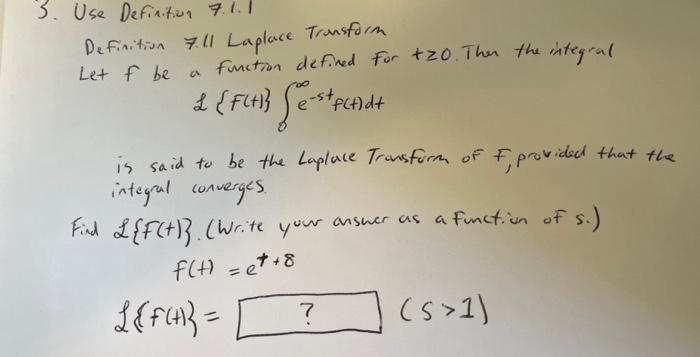 3. Use Definition 7.1.1
Definition 7.11 Laplace Transform
Let f be a function defined for t≥0. Then the integral
ℒ {f(t)} ∫₀^∞ e^-st f(t)dt
is said to be the Laplace Transform of f, provided that the
integral converges.
Find ℒ{f(t)}. (Write your answer as a function of s.)
f(t) = e^t+8
ℒ{f(t)} = ? (s>1)